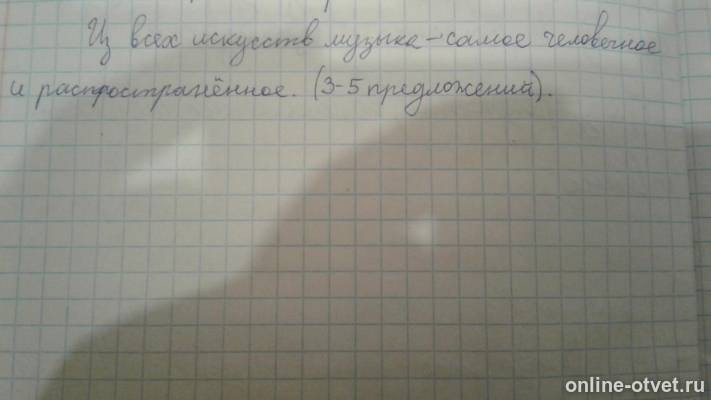 Из всех искусств музыка – самое человечное
и распространённое. (3-5 предложений).
online-otvet.ru